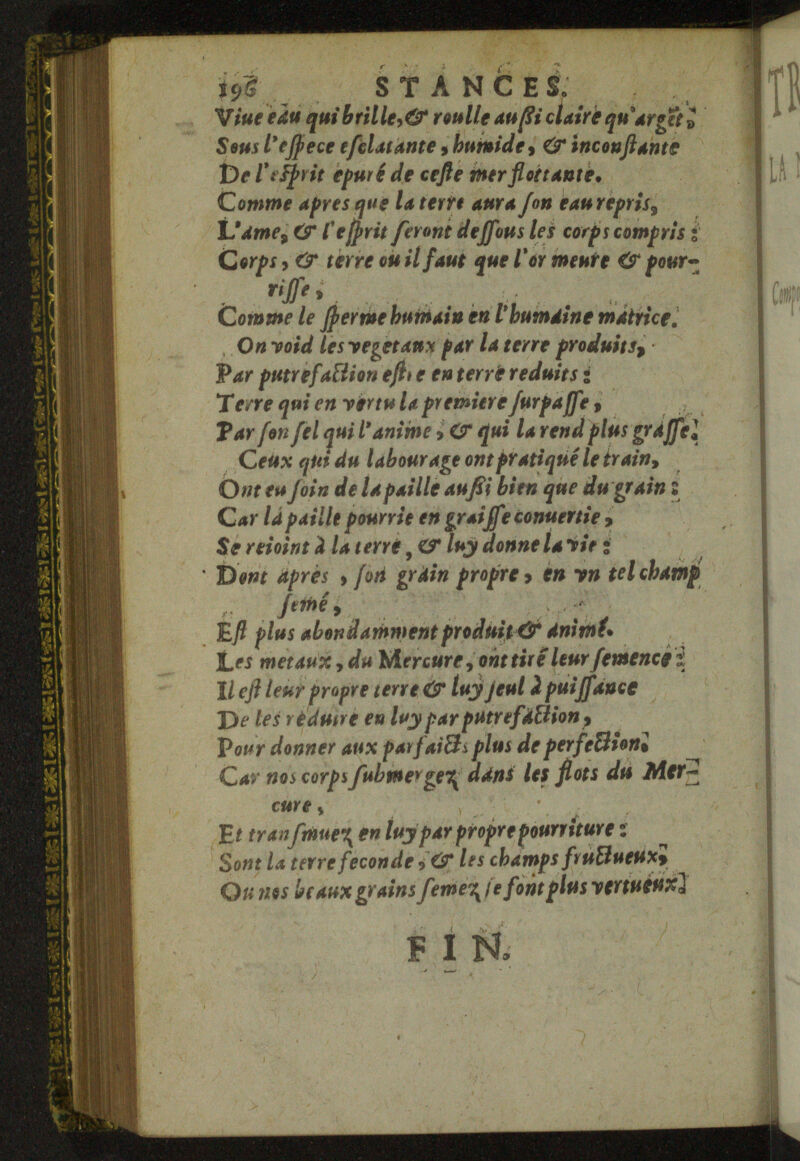 196 STANCES.
Viue eau qui brille, & roulle außi claire qu'argēt,
Sous l'eſpece eſclatante, humide, & inconſtante
De l'eſprit épuré de ceſte mer flottante.
Comme apres que la terre aura ſon eau repris,
L'ame, & l'eſprit ſeront deſſous les corps compris:
Corps, & terre où il faut que l'or meure & pour-
riſſe,
Comme le ſperme humain en l'humaine matrice.
On void les vegetaux par la terre produits,
Par putrefaction eſtre en terre reduits:
Terre qui en vertu la premiere ſurpaſſe,
Par ſon ſel qui l'anime, & qui la rend plus graſſe.
Ceux qui du labourage ont pratiqué le train,
Ont eu ſoin de la paille außi bien que du grain:
Car la paille pourrie en graiſſe conuertie,
Se reioint à la terre, & luy donne la vie:
Dont apres, ſon grain propre, en vn tel champ
ſemé,
Eſt plus abondamment produit & animé.
Les metaux, du Mercure, ont tiré leur ſemence:
Il eſt leur propre terre & luy ſeul à puiſſance
De les reduire en luy par putrefaction,
Pour donner aux parfaicts plus de perfection.
Car nos corps ſubmergez dans les flots du Mer-
cure,
Et tranſmuez en luy par propre pourriture:
Sont la terre feconde, & les champs fructueux,
Ou nos beaux grains ſemez ſe font plus vertueux.
FIN.
TR
LA
Compo